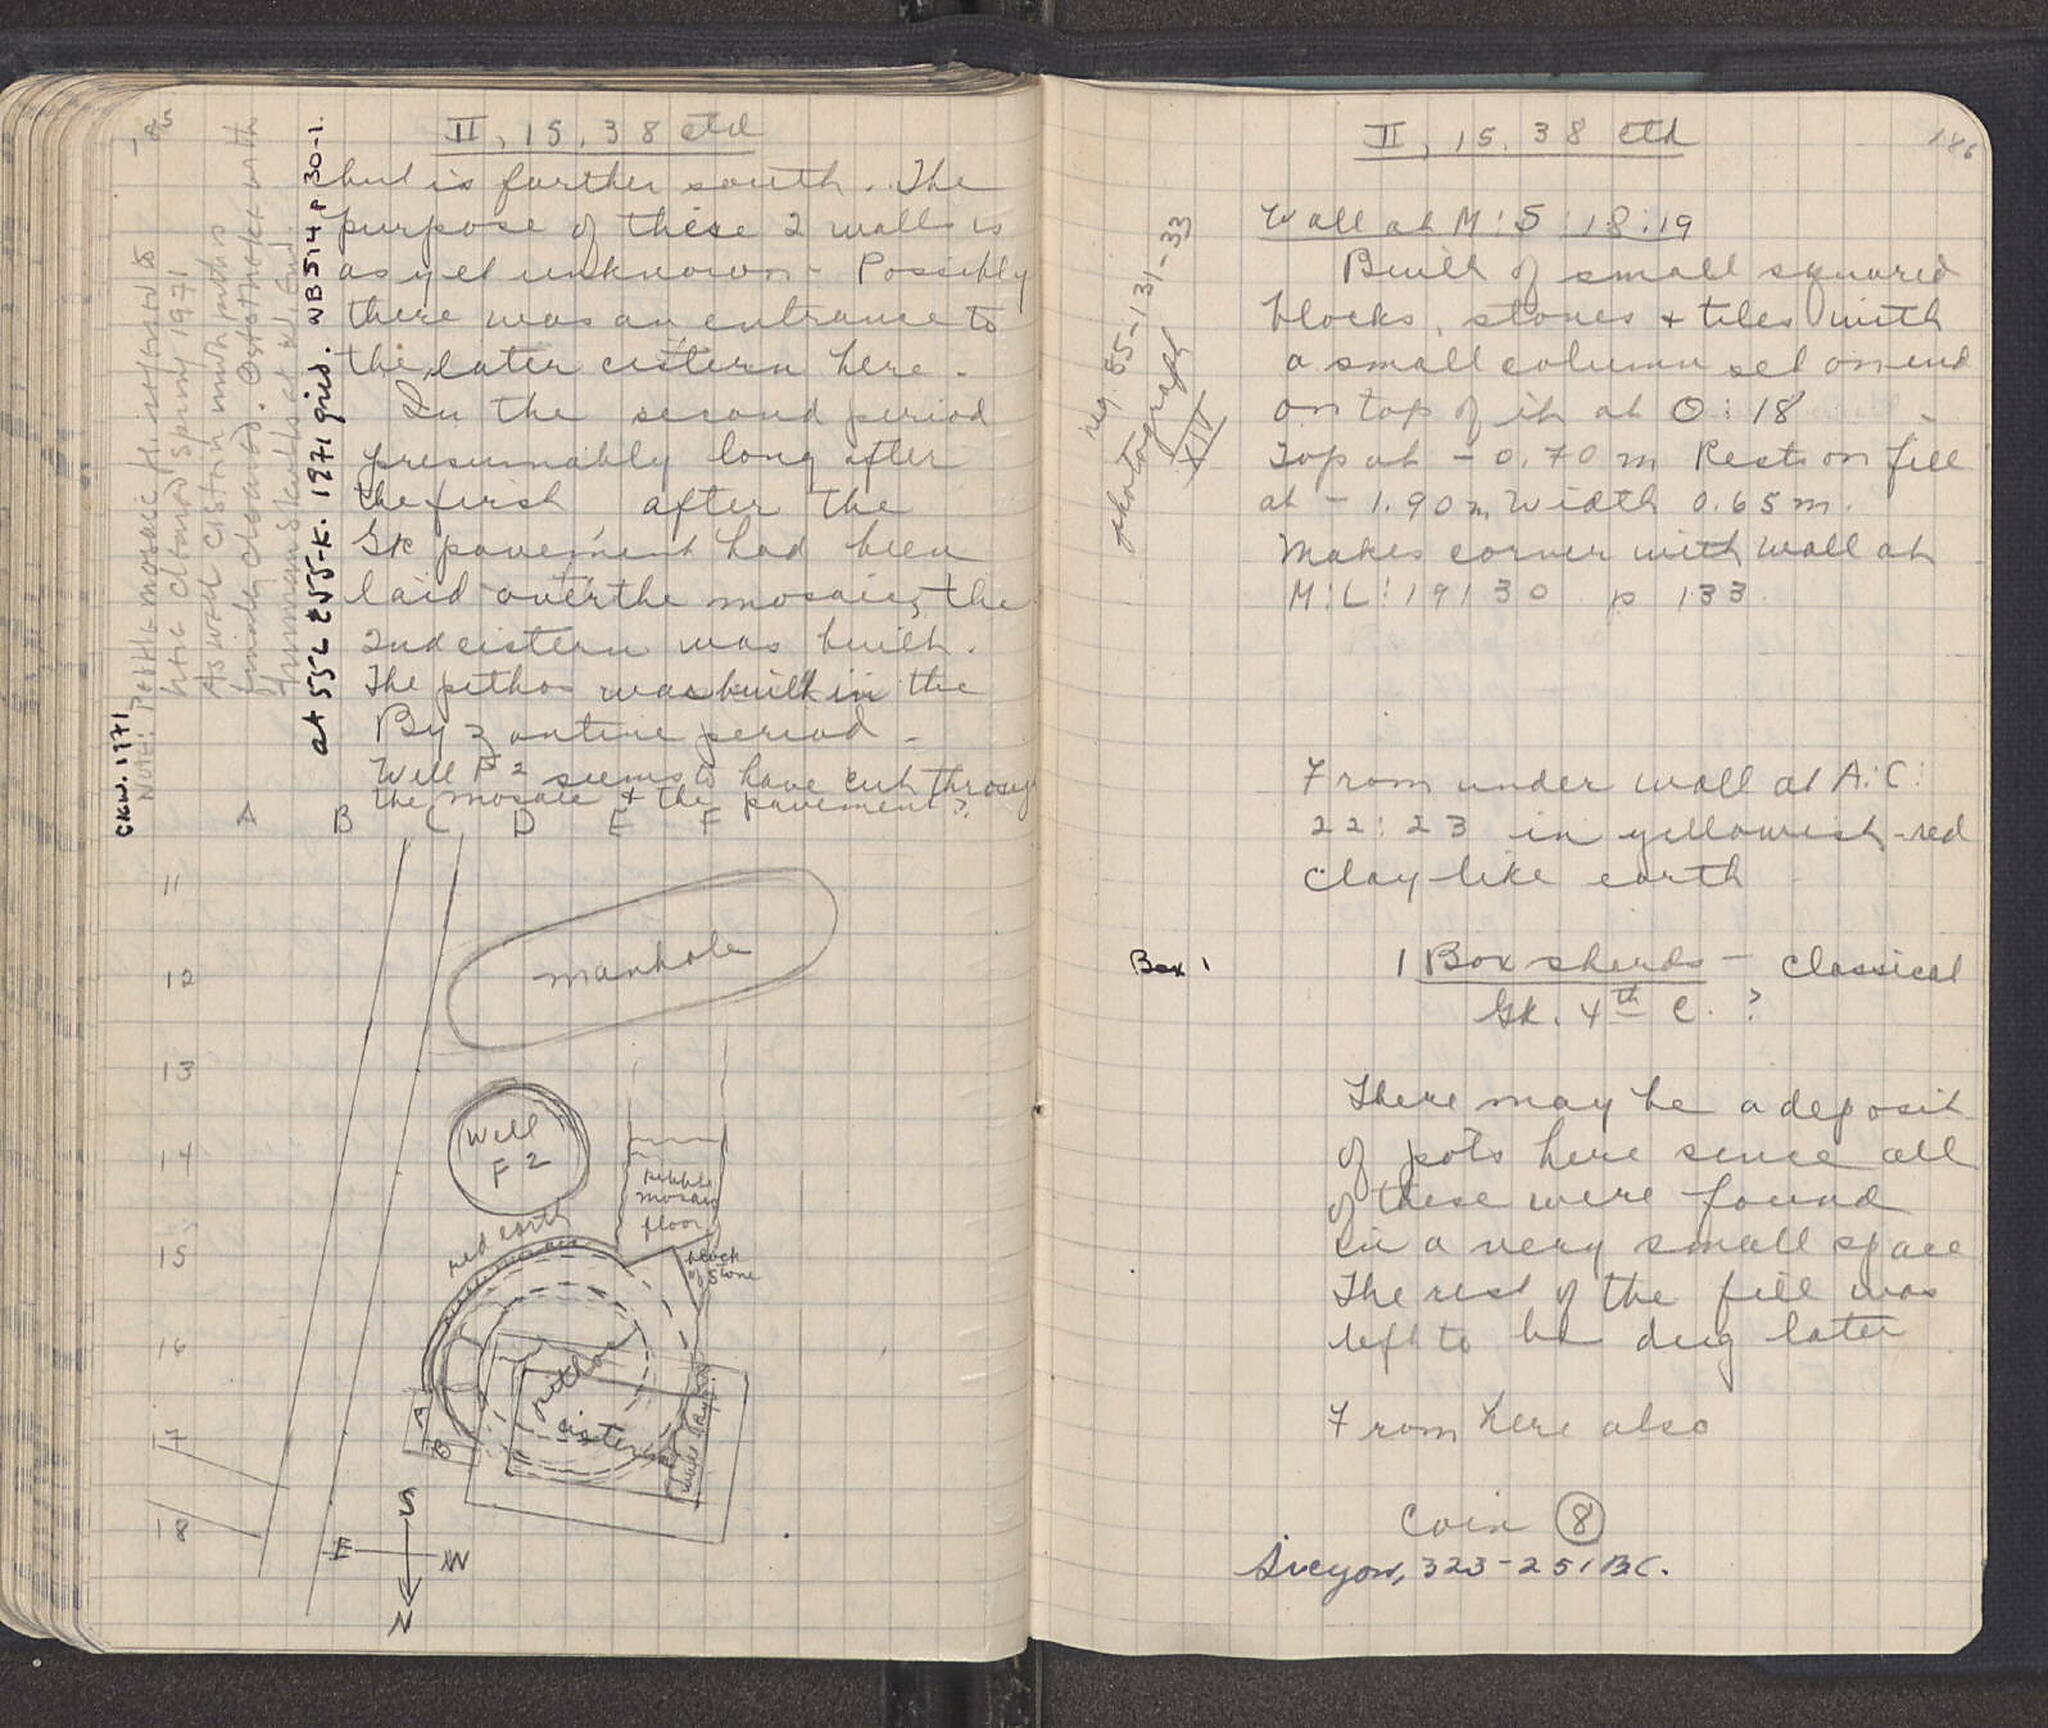 185
II, 15, 38 ctd
but is farther south. The
purpose of these 2 walls is
as yet unknown - Possibly
there was an entrance to
the later cistern here.
In the second period
presumably long after
the first, after the
Gk pavement had been
laid over the mosaics, the
2nd cistern was built.
The pithos was built in the
Byzantine period.
Well F2 seems to have cut through
the mosaic & the pavement?
CKW. 1971
Note: Pebble mosaic
here cleaned spring 1971
As well cistern
cleaned.
human skulls at W. End.
at 55L &55-K. 1971 grid. NB 514 P 30-1.
A B C D E F
11
12
13
14
15
16
17
18
manhole
Well
F2
pebble
mosaic
floor
red earth
block
of stone
pithos
cistern
A
B
S
E W
N
186
II, 15, 38 ctd
neg. 55-131-33
photograph
XIV
Wall at M:S:18:19
Built of small squared
blocks, stones & tiles with
a small column set on end
on top of it at O:18
Top at - 0.70 m Rests on fill
at - 1.90 m Width 0.65 m.
Makes corner with wall at
M:L:19:30 p 133
From under wall at A:C:
22:23 in yellowish-red
clay like earth
Box 1
1 Box sherds - classical
Gk. 4th C. ?
There may be a deposit
of pots here since all
of these were found
in a very small space
The rest of the fill was
left to be dug later
From here also
Coin 8
Sicyon, 323-251 BC.